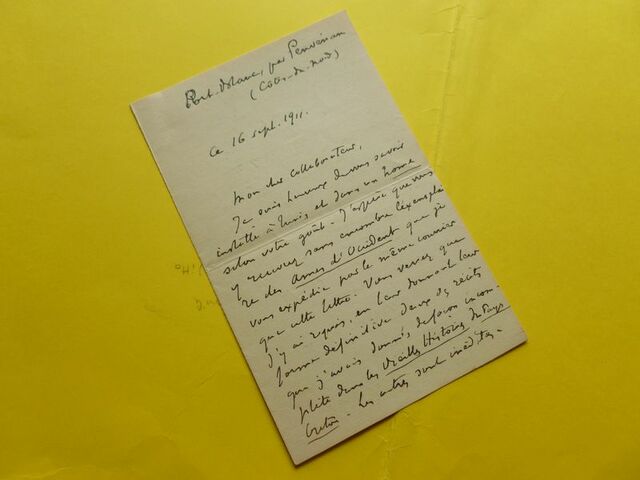 Port-Blanc, par Penvénan
(Côtes-du-Nord)
ce 16 sept. 1911.
Mon cher collaborateur,
Je suis heureux de vous savoir
installé à Tunis et dans un home
selon votre goût. J'espère que vous
y recevrez sans encombre l'exemplai
re des Ames d'Occident que je
vous expédie par le même courrier
que cette lettre. Vous verrez que
j'y ai repris, en leur donnant leur
forme définitive deux des récits
que j'avais donnés de façon incom-
plète dans les Vieilles Histoires du Pays
breton. Les autres sont inédites.